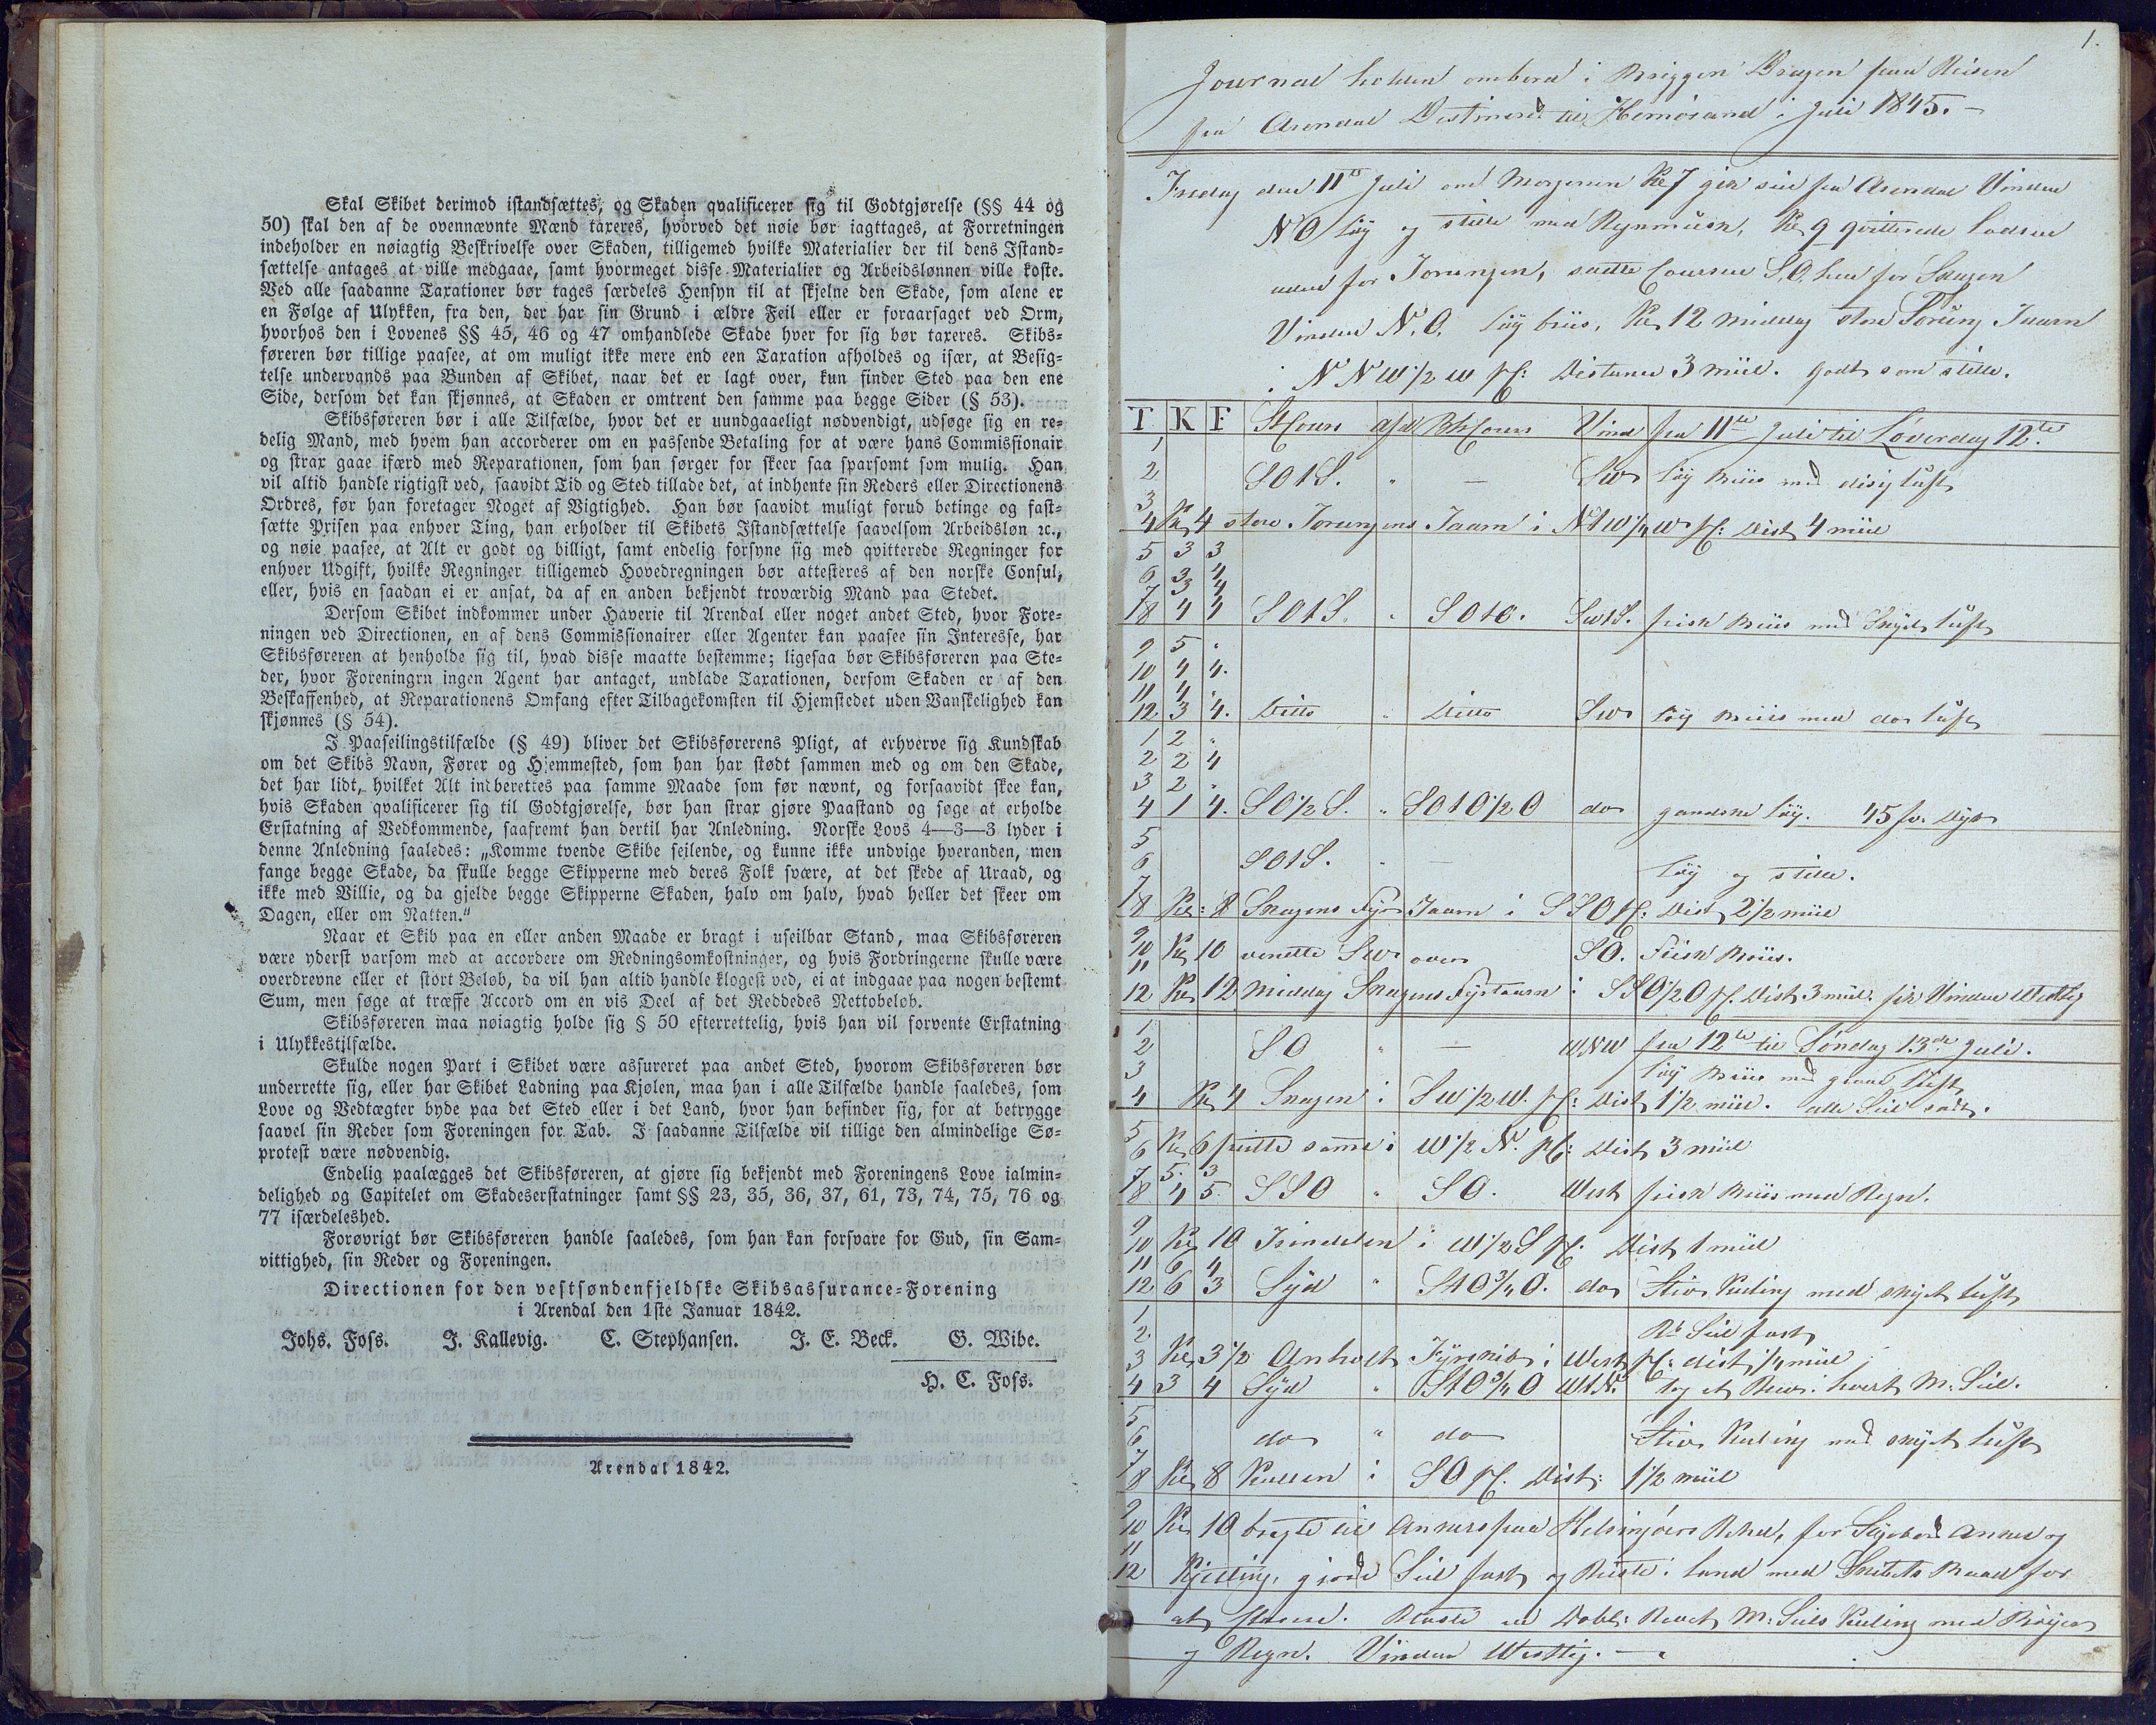 Skal Skibet derimod istandsættes, og Skaden qvalificerer sig til Godtgjørelse (§§ 44 og
50) skal den af de ovennævnte Mænd taxeres, hvorved det nøie bør iagttages, at Forretningen
indeholder en nøiagtig Beskrivelse over Skaden, tilligemed hvilke Materialier der til dens Istand-
sættelse antages at ville medgaae, samt hvormeget disse Materialier og Arbeidslønnen ville koste.
Ved alle saadanne Taxationer bør tages særdeles Hensyn til at skjelne den Skade, som alene er
en Følge af Ulykken, fra den, der har sin Grund i ældre Feil eller er foraarsaget ved Orm,
hvorhos den i Lovenes §§ 45, 46 og 47 omhandlede Skade hver for sig bør taxeres. Skibs-
føreren bør tillige paasee, at om muligt ikke mere end een Taxation afholdes og især, at Besig-
telse undervands paa Bunden af Skibet, naar det er lagt over, kun finder Sted paa den ene
Side, dersom det kan skjønnes, at Skaden er omtrent den samme paa begge Sider (§ 53).
Skibsføreren bør i alle Tilfælde, hvor det er uundgaaeligt nødvendigt, udsøge sig en re-
delig Mand, med hvem han accorderer om en passende Betaling for at være hans Commissionair
og strax gaae ifærd med Reparationen, som han sørger for skeer saa sparsomt som mulig. Han
vil altid handle rigtigst ved, saavidt Tid og Sted tillade det, at indhente sin Reders eller Directionens
Ordres, før han foretager Noget af Vigtighed. Han bør saavidt muligt forud betinge og fast-
sætte Prisen paa enhver Ting, han erholder til Skibets Istandsættelse saavelsom Arbeidsløn ꝛc.,
og nøie paasee, at Alt er godt og billigt, samt endelig forsyne sig med qvitterede Regninger for
enhver Udgift, hvilke Regninger tilligemed Hovedregningen bør attesteres af den norske Consul,
eller, hvis en saadan ei er ansat, da af en anden bekjendt troværdig Mand paa Stedet.
Dersom Skibet indkommer under Haverie til Arendal eller noget andet Sted, hvor Fore-
ningen ved Directionen, en af dens Commissionairer eller Agenter kan paasee sin Interesse, har
Skibsføreren at henholde sig til, hvad disse maatte bestemme; ligesaa bør Skibsføreren paa Ste-
der, hvor Foreningrn ingen Agent har antaget, undlade Taxationen, dersom Skaden er af den
Beskaffenhed, at Reparationens Omfang efter Tilbagekomsten til Hjemstedet uden Vanskelighed kan
skjønnes (§ 54).
I Paaseilingstilfælde (§ 49) bliver det Skibsførerens Pligt, at erhverve sig Kundskab
om det Skibs Navn, Fører og Hjemmested, som han har stødt sammen med og om den Skade,
det har lidt, hvilket Alt indberettes paa samme Maade som før nævnt, og forsaavidt skee kan,
hvis Skaden qvalificerer sig til Godtgjørelse, bør han strax gjøre Paastand og søge at erholde
Erstatning af Vedkommende, saafremt han dertil har Anledning. Norske Lovs 4—3—3 lyder i
denne Anledning saaledes: „Komme tvende Skibe seilende, og kunne ikke undvige hveranden, men
fange begge Skade, da skulle begge Skipperne med deres Folk svære, at det skede af Uraad, og
ikke med Villie, og da gjelde begge Skipperne Skaden, halv om halv, hvad heller det skeer om
Dagen, eller om Natten."
Naar et Skib paa en eller anden Maade er bragt i useilbar Stand, maa Skibsføreren
være yderst varsom med at accordere om Redningsomkostninger, og hvis Fordringerne skulle være
overdrevne eller et stort Beløb, da vil han altid handle klogest ved, ei at indgaae paa nogen bestemt
Sum, men søge at træffe Accord om en vis Deel af det Reddedes Nettobeløb.
Skibsføreren maa nøiagtig holde sig § 50 efterrettelig, hvis han vil forvente Erstatning
i Ulykkestilfælde.
Skulde nogen Part i Skibet være assureret paa andet Sted, hvorom Skibsføreren bør
underrette sig, eller har Skibet Ladning paa Kjølen, maa han i alle Tilfælde handle saaledes, som
Love og Vedtægter byde paa det Sted eller i det Land, hvor han befinder sig, for at betrygge
saavel sin Reder som Foreningen for Tab. I saadanne Tilfælde vil tillige den almindelige Sø-
protest være nødvendig.
Endelig paalægges det Skibsføreren, at gjøre sig bekjendt med Foreningens Love ialmin-
delighed og Capitelet om Skadeserstatninger samt §§ 23, 35, 36, 37, 61, 73, 74, 75, 76 og
77 isærdeleshed.
Forøvrigt bør Skibsføreren handle saaledes, som han kan forsvare for Gud, sin Sam-
vittighed, sin Reder og Foreningen.
Directionen for den vestsøndenfjeldske Skibsassurance-Forening
i Arendal den 1ste Januar 1842.
Johs. Foss. J. Kallevig. C. Stephansen. J. E. Beck. G. Wibe.
H. C. Foss.
Arendal 1842.
1.
Journal holden ombord i Briggen Dragen paa Reisen
fra Arendal Destinered til Hernösand i Juli 1845.
Fredag den 11te Juli om Morgenen Kl 7 gik seil fra Arendal Vinden
NO löy og stille med Regnmusk, Kl 9 qvitterede Lodsen
uden for Torungen, satte Coursen S.O. hen for Skagen
Vinden N.O. löy briis, Kl 12 middag store Torung Taarn
i NNW 1/2 W pC: Distance 3 miil. godt som stille.
T K F St Cours Afd Beh Cours Vind fra 11te Juli til Löverdag 12te
1
2 SOtS. " — SW löy Briis med disig luft
3
4 Kl 4 store Torungens Taarn i NtW 1/4 W pC: Dist 4 miil
5 3 3
6 3 4
7 3 4
8 4 4 SOtS. " SOtO. SWtS. frisk Briis med Skyet luft
9 5 "
10 4 4.
11 4 "
12 3 4. Ditto " Ditto SW löy Briis med do luft
1 2 "
2 2 4
3 2 "
4 1 4. SO 1/2 S. " SOtO 1/2 O do gandske löy. 45 fv. Dyb
5
6 SOtS. " — löy og stille.
7
8 Kl: 8 Skagens Fyr Taarn i SSO pC: Dist 2 1/2 miil
9
10 Kl 10 vendte SW over SO. Frisk Briis.
11
12 Kl 12 Middag Skagens Fyrtaarn i SSO 1/2 O pC. Dist 3 miil. fik Vinden Westlig
1 fra 12te til Söndag 13de Juli.
2 SO " — WNW
3 löy Briis med graae luft
4 Kl 4 Skagen i SW 1/2 W. pC: Dist 1 1/2 miil. alle Seil satt.
5
6 Kl 6 peilte samme i W 1/2 N. pC: Dist 3 miil
7 5. 3
8 4 5. SSO " SO. West frisk Briis med Regn.
9
10 Kl 10 Trindelen i W 1/2 S pC. Dist 1 miil
11 6 4
12 6 3 Syd " StO 3/4 O. do Stiv Kuling med skyet luft
1
2 Seil fast
3 Kl 3 1/2 Anholt Fyrskib i West pC: dist 1/4 miil
4 3 4 Syd " StO 3/4 O WtN. tog et Rev i hvert M. Seil.
5
6 do " do Stiv Kuling med skyet luft
7
8 Kl 8 Kullen i SO pC. Dist: 1 1/2 miil
9
10 Kl 10 bragte til Ankers paa Helsingöers Rhed, for Anker og
11
12 Kjetting, gjorde Seil fast og Reiste i land med Skibets Baad for
at klarere. Dobl: Revet M: Seils Kuling med Böyer
og Regn. Vinden Westlig.